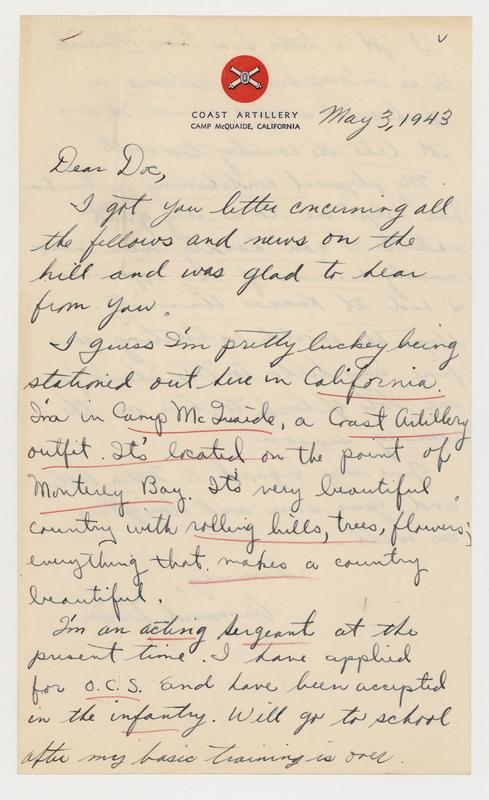 COAST ARTILLERY
CAMP McQUAIDE, CALIFORNIA
May 3, 1943
Dear Doc,
I got you letter concerning all
the fellows and news on the
hill and was glad to hear
from you.
I guess I'm pretty luckey being
stationed out here in California.
I'm in Camp McQuaide, a Coast Artillery
outfit. It's located on the point of
Monterey Bay. It's very beautiful
country with rolling hills, trees, flowers;
everything that makes a country
beautiful.
I'm an acting sergeant at the
present time. I have applied
for O.C.S. and have been accepted
in the infantry. Will go to school
after my basic training is over.